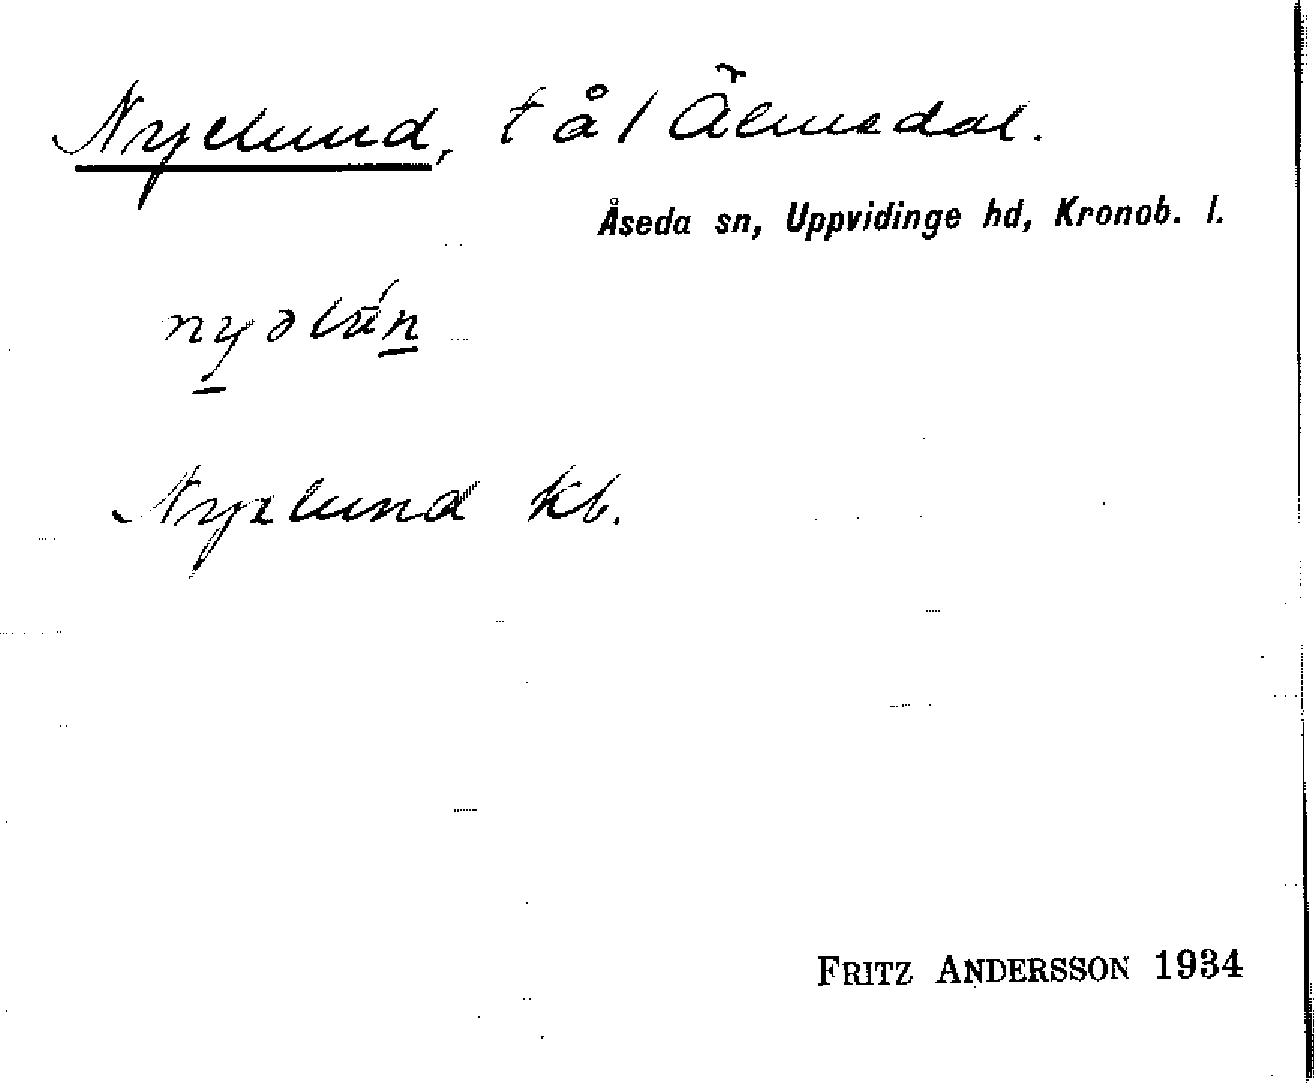 Nyelund, t å l Älmedal.
Åseda sn, Uppvidinge hd, Kronob. l.
Nyelund kb.
FRITZ ANDERSSON 1934